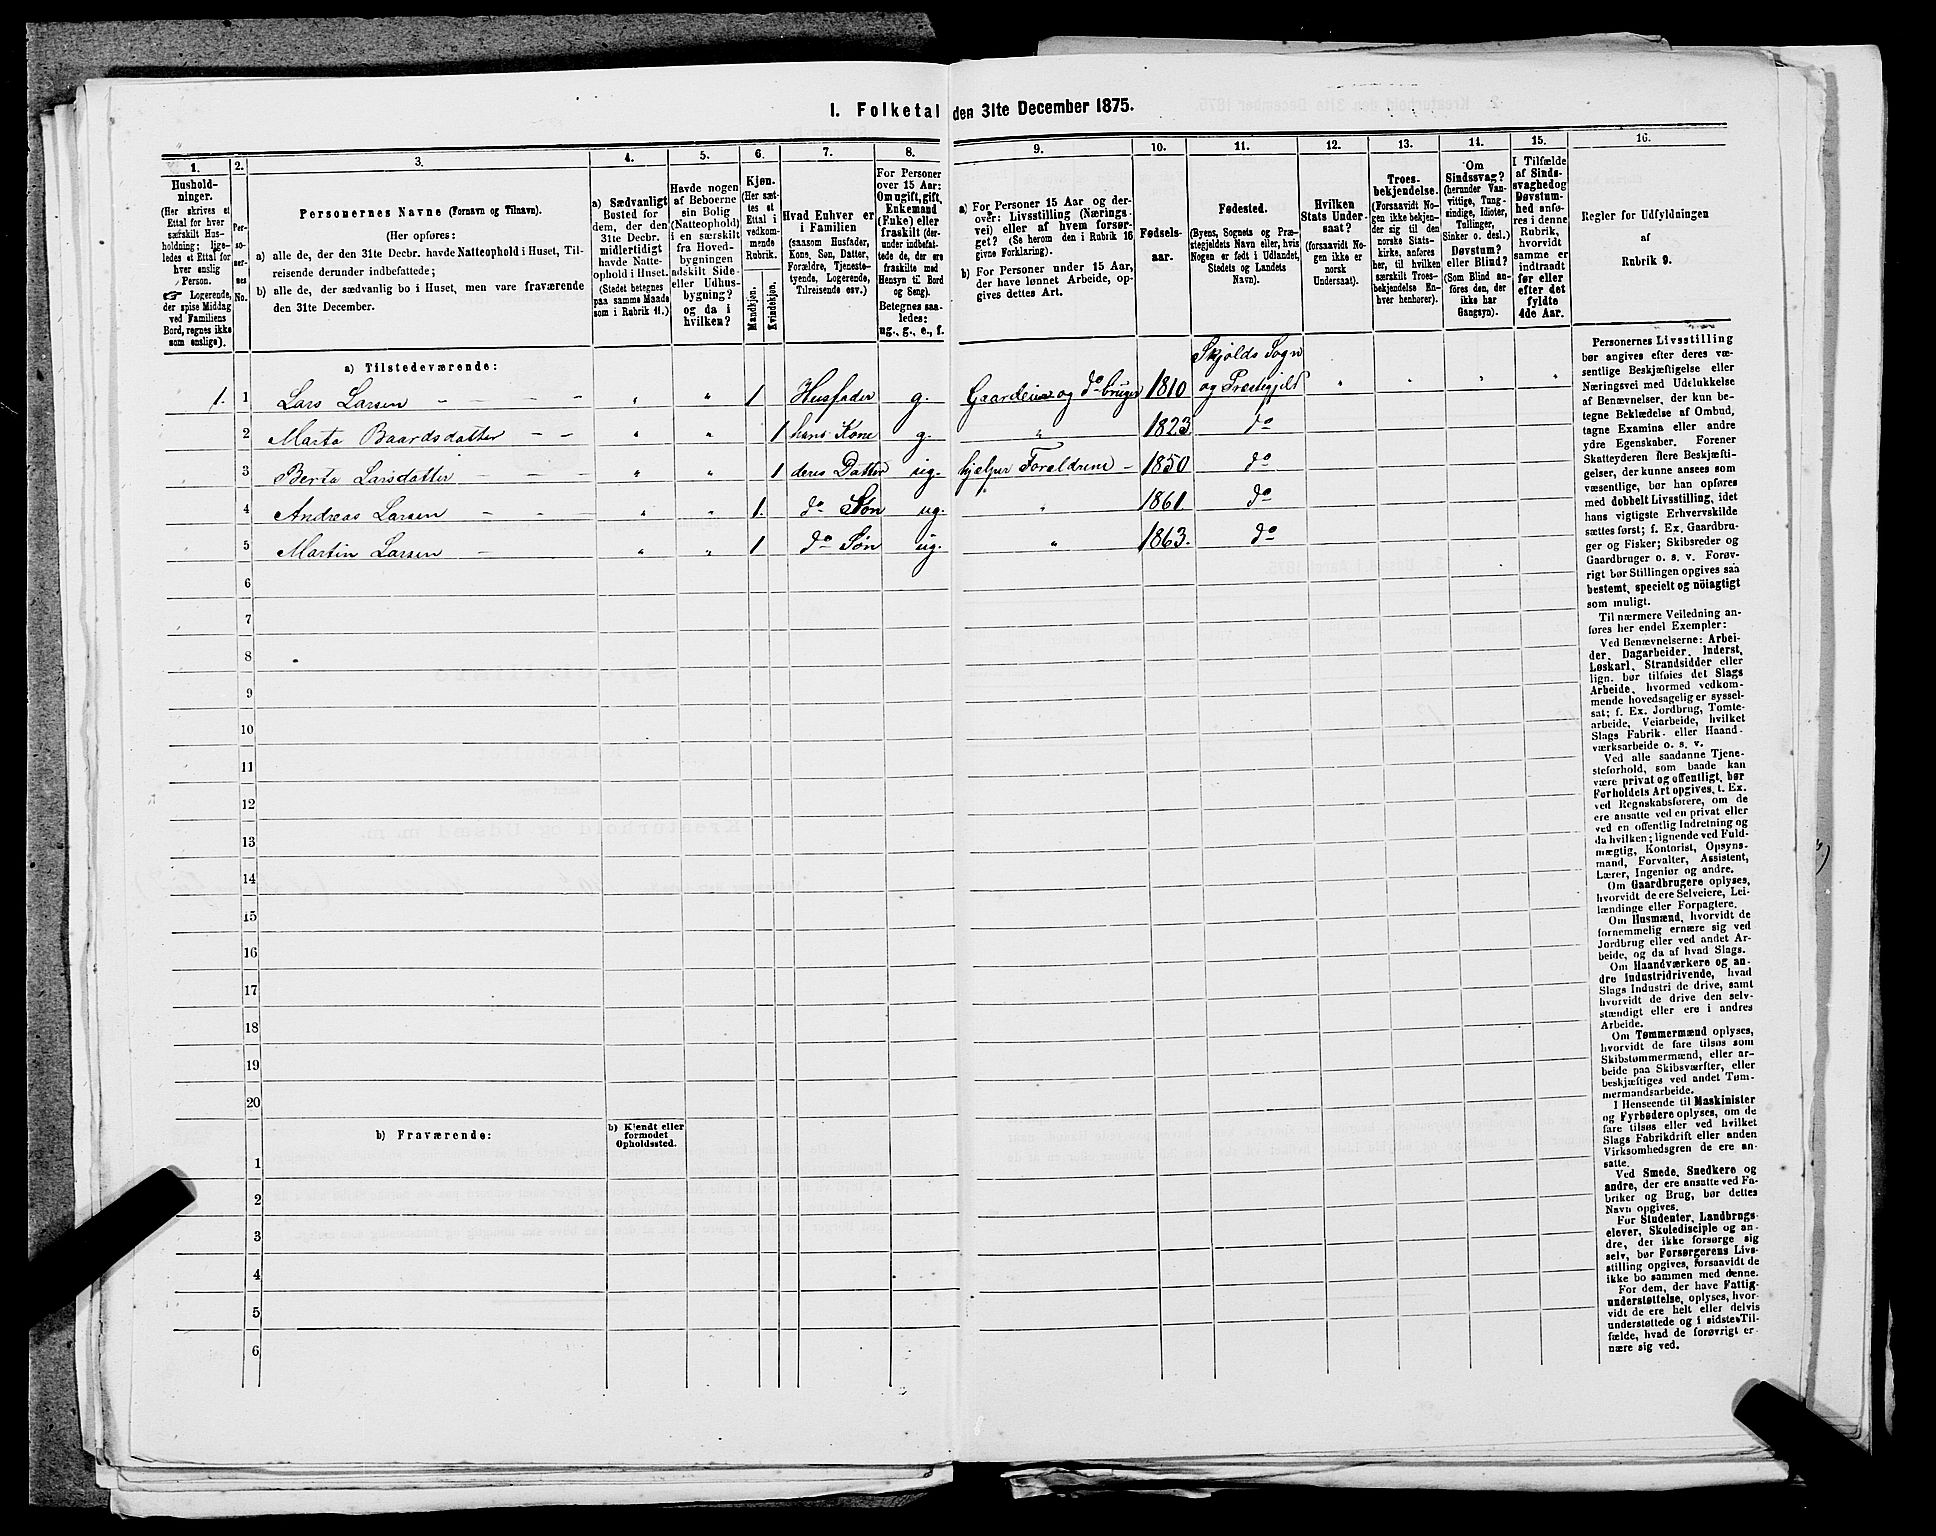 I. Folketal den 31te December 1875.
1. 2. 3. 4. 5. 6. 7. 8. 9. 10. 11. 12. 13. 14. 15. 16.
Hushold-
ninger.
(Her skrives et
Ettal for hver
særskilt Hus-
holdning; lige-
ledes et Ettal for
hver enslig
Person.
☞ Logerende,
der spise Middag
ved Familiens
Bord, regnes ikke
som enslige).
Per-
so-
ner-
nes
No.
Personernes Navne (Fornavn og Tilnavn).
(Her opføres:
a) alle de, der den 31te Decbr. havde Natteophold i Huset, Til-
reisende derunder indbefattede;
b) alle de, der sædvanlig bo i Huset, men vare fraværende
den 31te December.
a) Sædvanligt
Bosted for
dem, der den
31te Decbr.
midlertidigt
havde Natte-
ophold i Huset.
(Stedet betegnes
paa samme Maade
som i Rubrik 11.)
Havde nogen
af Beboerne
sin Bolig
(Natteophold)
i en særskilt
fra Hoved-
bygningen
adskilt Side-
eller Udhus-
bygning?
og da i
hvilken?
Kjøn.
(Her sæt-
tes et
Ettal i
vedkom-
mende
Rubrik.
Mandkjøn.
Kvindekjøn.
Hvad Enhver er
i Familien
(saasom Husfader,
Kone, Søn, Datter,
Forældre, Tjeneste-
tyende, Logerende,
Tilreisende osv.)
For Personer
over 15 Aar:
Om ugift, gift,
Enkemand
(Enke) eller
fraskilt (der-
under indbefat-
tede de, der ere
fraskilte med
Hensyn til Bord
og Seng).
Betegnes saa-
ledes:
ug., g., e., f.
a) For Personer 15 Aar og der-
over: Livsstilling (Nærings-
vei) eller af hvem forsør-
get? (Se herom den i Rubrik 16
givne Forklaring).
b) For Personer under 15 Aar,
der have lønnet Arbeide, op-
gives dettes Art.
Fødsels-
aar.
Fødested.
(Byens, Sognets og Præ-
stegjeldets Navn eller, hvis
Nogen er født i Udlandet,
Stedets og Landets
Navn).
Hvilken
Stats Under-
saat?
(forsaavidt No-
gen ikke er
norsk
Undersaat).
Troes-
bekjendelse.
(Forsaavidt No-
gen ikke bekjen-
der sig til den
norske Stats-
kirke, anføres
her, til hvilken
særskilt Troes-
bekjendelse En-
hver henhører).
Om
Sindssvag?
(herunder Van-
vittige, Tung-
sindige, Idioter,
Tullinger,
Sinker o. desl.)
Døvstum?
eller Blind?
(Som Blind an-
føres den, der
ikke har
Gangsyn).
I Tilfælde
af Sinds-
svaghed og
Døvstum-
hed anfø-
res i denne
Rubrik,
hvorvidt
samme er
indtraadt
før eller
efter det
fyldte
4de Aar.
Regler for Udfyldningen
af
Rubrik 9.
a) Tilstedeværende:
Skjolds Sogn
1. 1 Lars Larsen — " " 1 Husfader g. Gaardeier og do bruger 1810 og Præstegjeld " " " "
2 Marta Baardsdatter — " " 1 hans Kone g. " 1823 do
3 Berta Larsdatter — " " 1 deres Datter ug. hjelper Forældrene — 1850 do
4 Andreas Larsen — " " 1. do Søn ug. " 1861. do
5 Martin Larsen — " " 1 do Søn ug. " 1863. do
6
7
8
9
10
11
12
13
14
15
16
17
18
19
20
b) Fraværende:
b) Kjendt eller
formodet
Opholdssted.
1
2
3
4
5
6
Personernes Livsstilling
bør angives efter deres væ-
sentlige Beskjæftigelse eller
Næringsvei med Udelukkelse
af Benævnelser, der kun be-
tegne Beklædelse af Ombud,
tagne Examina eller andre
ydre Egenskaber. Forener
Skatteyderen flere Beskjæfti-
gelser, der kunne ansees som
væsentlige, bør han opføres
med dobbelt Livsstilling, idet
hans vigtigste Erhvervskilde
sættes først; f. Ex. Gaardbru-
ger og Fisker; Skibsreder og
Gaardbruger o. s. v. Forøv-
rigt bør Stillingen opgives saa
bestemt, specielt og nöiagtigt
som muligt.
Til nærmere Veiledning an-
føres her endel Exempler:
Ved Benævnelserne: Arbei-
der, Dagarbeider, Inderst,
Løskarl, Strandsidder eller
lign. bør tilføies det Slags
Arbeide, hvormed vedkom-
mende hovedsagelig er syssel-
sat; f. Ex. Jordbrug, Tomte-
arbeide, Veiarbeide, hvilket
Slags Fabrik- eller Haand-
værksarbeide o. s. v.
Ved alle saadanne Tjene-
steforhold, som baade kan
være privat og offentligt, bør
Forholdets Art opgives, t. Ex.
ved Regnskabsførere, om de
ere ansatte ved en privat eller
ved en offentlig Indretning og
da hvilken; lignende ved Fuld-
mægtig, Kontorist, Opsyns-
mand, Forvalter, Assistent,
Lærer, Ingeniør og andre.
Om Gaardbrugere oplyses,
hvorvidt de ere Selveiere, Lei-
lændinge eller Forpagtere.
Om Husmænd, hvorvidt de
fornemmelig ernære sig ved
Jordbrug eller ved andet Ar-
beide, og da af hvad Slags.
Om Haandværkere og an-
dre Industridrivende, hvad
Slags Industri de drive, samt
hvorvidt de drive den selv-
stændigt eller ere i andres
Arbeide.
Om Tømmermænd oplyses,
hvorvidt de fare tilsøs som
Skibstømmermænd, eller ar-
beide paa Skibsværfter, eller
beskjæftiges ved andet Tøm-
mermandsarbeide.
I Henseende til Maskinister
og Fyrbødere oplyses, om de
fare tilsøs eller ved hvilket
Slags Fabrikdrift eller anden
Virksomhedsgren de ere an-
satte.
Ved Smede, Snedkere og
andre, der ere ansatte ved Fa-
briker og Brug, bør dettes
Navn opgives.
For Studenter, Landbrugs-
elever, Skoledisciple og an-
dre, der ikke forsørge sig
selv, bør Forsørgerens Livs-
stilling opgives, forsaavidt de
ikke bo sammen med denne.
For dem, der have Fattig-
understøttelse, oplyses, hvor-
vidt de ere helt eller delvis
understøttede og i sidste Til-
fælde, hvad de forøvrigt er-
nære sig ved.